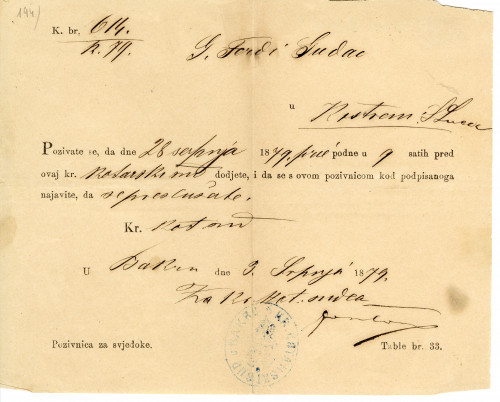 194)
K. br. 614.
k. 79.
G.
u
Kostreni S. Lucia
Pozivate se, da dne 28 serpnja 1879, pred podne u 9 satih pred
ovaj kr. kotarski sud dodjete, i da se s ovom pozivnicom kod podpisanoga
najavite, da se preslušate.
Kr. kot. sud
U Bakru dne 3. Srpnja 1879.
Za kr. kot. sudca
Pozivnica za svjedoke.
Table br. 33.